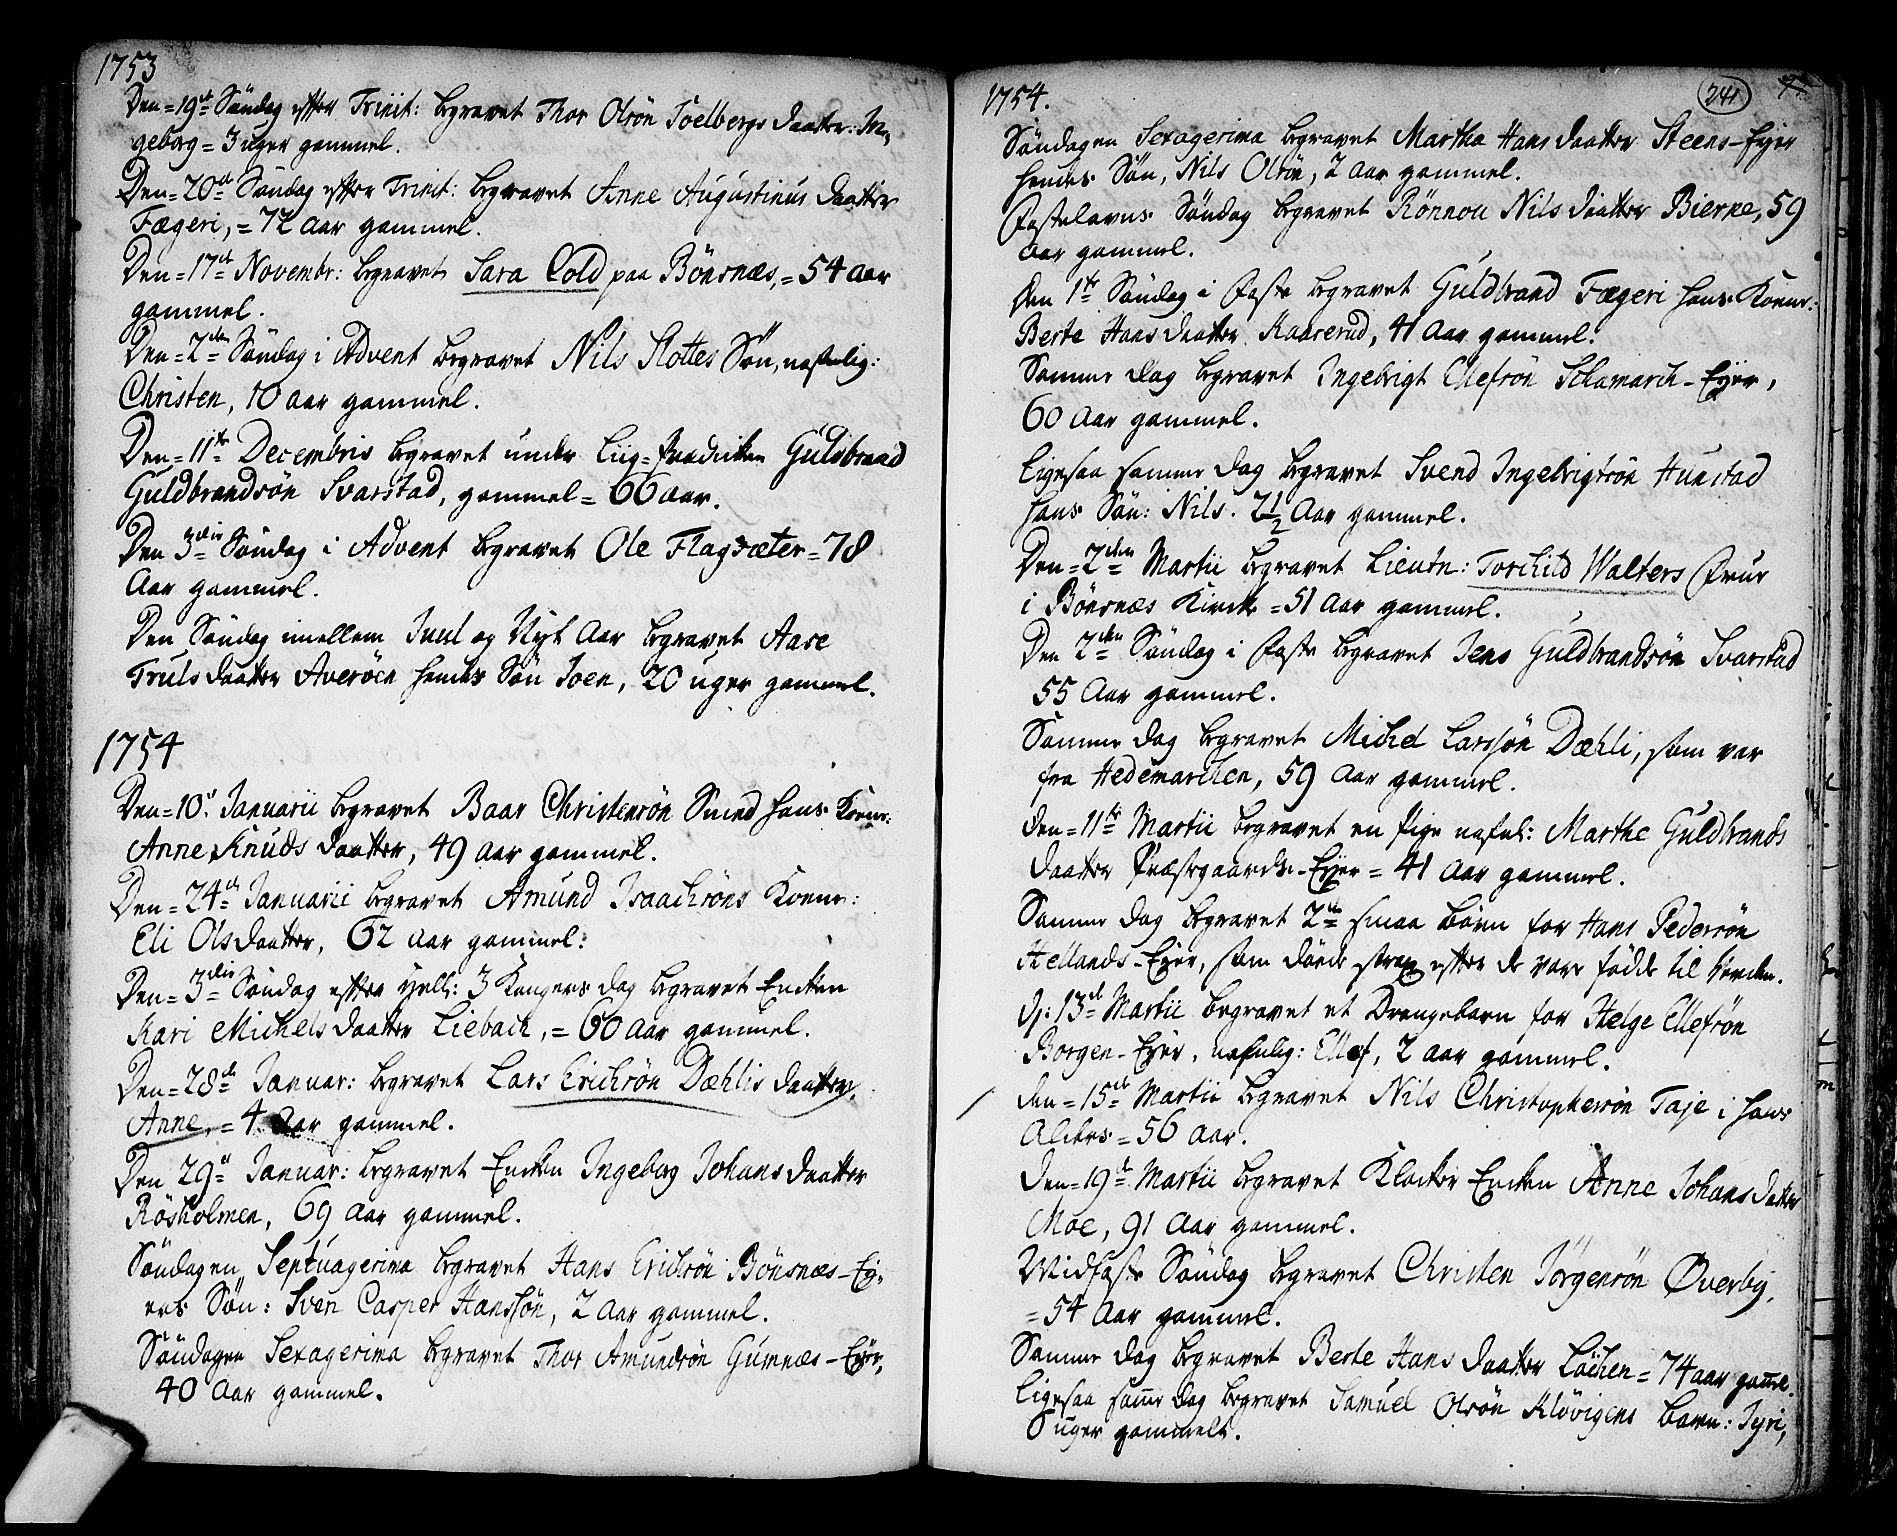 1753
Den = 19de Søndag efter Trinit: begravet Thor Olsøn Toelbergs daatter: In-
geborg = 3 uger gammel.
Den = 20de Søndag efter Trinit: begravet Anne Augustinus daatter
Fægeri, = 72 aar gammel.
Den = 17de Novembr: begravet Sara Cold paa Bönsnæs, = 54 aar
gammel.
Den = 2den Søndag i Advent begravet Nils Slottes Søn, nafnlig:
Christen, 10 aar gammel.
Den = 11te Decembris begravet under Liig-Prædicken Guldbrand
Guldbrandsön Svarstad, gammel = 66 aar.
Den 3die Søndag i Advent begravet Ole Flagsæter = 78
Aar gammel.
Den Søndag imellem Juul og Nyt Aar begravet Aase
Truls daatter Averöen hendes Søn Joen, 20 uger gammel.
1754
Den = 10de Januarii begravet Baar Christensön Smed hans Kone:
Anne Knuds daatter, 49 aar gammel.
Den = 24de Januarii begravet Amund Isaachsöns Kone:
Eli Olsdaatter, 62 aar gammel:
Den = 3die Søndag efter Hell: 3 Kongers dag begravet Encken
Kari Michels daatter Liebach, = 60 aar gammel.
Den = 28de Januar: begravet Lars Erichsön Dæhlis daatter,
Anne, = 4 aar gammel.
Den 29de Januar: begravet Encken Ingeborg Johans daatter
Rösholmen, 69 aar gammel.
Søndagen Septuagesima begravet Hans Erichsön Bönsnæs-Ey-
ers Søn: Sven Casper Hanssön, 2 aar gammel.
Søndagen Sexagesima begravet Thor Amundsön Gumnæs-Eyer,
40 aar gammel.
1754.
241
Søndagen Sexagesima begravet Martha Hans daatter Steens-Eyer
hendes Søn, Nils Olsön, 2 aar gammel.
Fastelavns Søndag begravet Rönnou Nils daatter Bierke, 59
aar gammel.
Den 1te Søndag i Faste begravet Guldbrand Fægeri hans Kone:
Berte Hans daatter Kaarerud, 41 aar gammel.
Samme dag begravet Ingebrigt Ellefsön Schamarch-Eyer,
60 aar gammel.
Ligesaa samme dag begravet Svend Ingebrigtsön Hunstad
hans Søn: Nils. 2 1/2 Aar gammel.
Den = 2den Martii begravet Lieutn: Torchild Walters Frue
i Bönsnæs Kirke = 51 aar gammel.
Den 2den Søndag i Faste begravet Jens Guldbrandsön Svarstad
55 Aar gammel.
Samme dag begravet Michel Larssön Dæhli, som var
fra Hedemarchen, 59 Aar gammel.
Den = 11te Martii begravet en Pige nafnl: Marthe Guldbrands
daatter Præstgaards-Eyer = 41 Aar gammel.
Samme dag begravet 2de smaa børn for Hans Pedersön
Hellands-Eyer, som døede strax efter de vare fødde til Verden.
D: 13de Martii begravet et Drengebarn for Helge Ellefsön
Borgen-Eyer, nafnlig: Ellef, 2 aar gammel.
Den = 15de Martii begravet Nils Christophersön Taje i hans
Alders = 56 aar.
Den = 19de Martii begravet Klocker Encken Anne Johansdatter
Moe, 91 Aar gammel.
Midfaste Søndag begravet Christen Jörgensön Øverby,
= 54 Aar gammel.
Samme dag begravet Berte Hans daatter Löchen = 74 aar gamel.
Ligesaa samme dag begravet Samuel Olsön Klövigens barn: Syri,
6 uger gammelt.